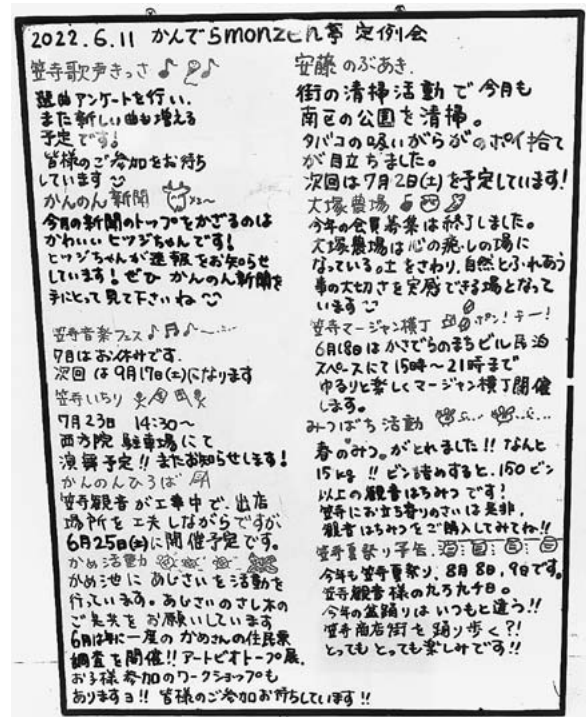 2022.6.11 かんでらmonzen亭 定例会
笠寺歌声きっさ
選曲アンケートを行い、
また新しい曲も増える
予定です!
皆様のご参加をお待ち
しています
かんのん新聞
今月の新聞のトップをかざるのは
かわいい ヒツジちゃんです!
ヒツジちゃんが速報をお知らせ
しています!ぜひ かんのん新聞を
手にとって見て下さいね
笠寺音楽フェス
7月はお休みです.
次回は9月17日(土)になります
笠寺いちり
7月23日 14:30〜
西方院 駐車場にて
演舞予定!!またお知らせします!
かんのんひろば
笠寺観音が工事中で、出店
場所を工夫しながらですが
6月25日(土)に開催予定です。
かめ活動
かめ池にあじさいを活動を
行っています。あじさいのさし木の
ご協力をお願いしています
6月は年に一度のかめさんの住民票
調査を開催!!アートビオトープ展.
お子様参加のワークショップも
ありますョ!! 皆様のご参加お待ちしています!!
安藤のぶあき.
街の清掃活動で今月も
南区の公園を清掃。
タバコの吸いがらがのポイ捨て
が目立ちました。
次回は7月2日(土)を予定しています!
大塚農場
今年の会員募集は終了しました。
大塚農場は心の癒しの場に
なっている。土をさわり、自然とふれあう
事の大切さを実感できる場となって
います
笠寺マージャン横丁 ポン!チー!
6月18日はかさでらのまちビル民泊
スペースにて15時〜21時まで
ゆるりと楽しくマージャン横丁開催
します。
みつばち活動
春の"みつ"がとれました!! なんと
15kg!! ビン詰めすると、150ビン
以上の観音はちみつです!
笠寺にお立ち寄りのさいは是非、
観音はちみつをご購入してみてね!!
笠寺夏祭り予告
今年も笠寺夏祭り、8月8日,9日です。
笠寺観音様の九万九千日。
今年の盆踊りはいつもと違う!!
笠寺商店街を踊り歩く?!
とっても とっても楽しみです!!